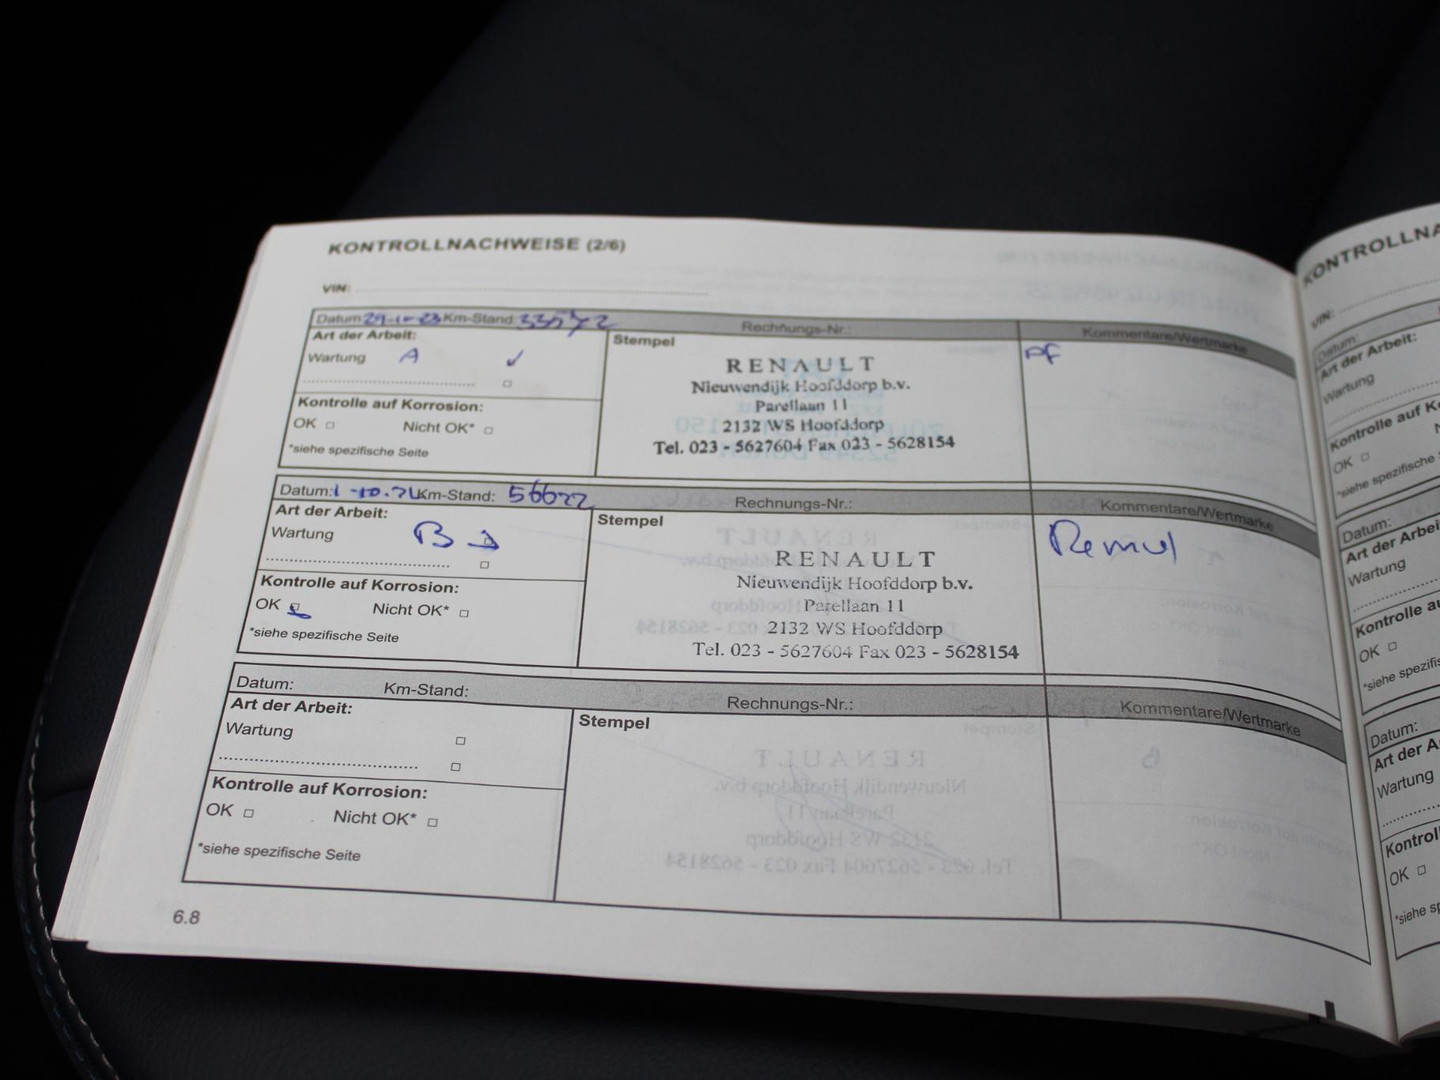 KONTROLLNACHWEISE (2/6)
VIN:
Datum: Km-Stand: 33572 Rechnungs-Nr.: Kommentare/Wertmarke
Art der Arbeit:
Wartung A ✓
Kontrolle auf Korrosion:
OK □ Nicht OK* □
*siehe spezifische Seite
Stempel
RENAULT
Nieuwendijk Hoofddorp b.v.
Parellaan 11
2132 WS Hoofddorp
Tel. 023 - 5627604 Fax 023 - 5628154
Datum: Km-Stand: 56622 Rechnungs-Nr.: Kommentare/Wertmarke
Art der Arbeit:
Wartung B
Kontrolle auf Korrosion:
OK □ Nicht OK* □
*siehe spezifische Seite
Stempel
RENAULT
Nieuwendijk Hoofddorp b.v.
Parellaan 11
2132 WS Hoofddorp
Tel. 023 - 5627604 Fax 023 - 5628154
Datum: Km-Stand: Rechnungs-Nr.: Kommentare/Wertmarke
Art der Arbeit:
Wartung □
Kontrolle auf Korrosion:
OK □ Nicht OK* □
*siehe spezifische Seite
Stempel
6.8
KONTROLLNA
VIN:
Datum:
Art der Arbeit:
Wartung
Kontrolle auf K
OK □
*siehe spezifische
Datum:
Art der Arbei
Wartung
Kontrolle au
OK □
*siehe spezifis
Datum:
Art der A
Wartung
Kontrol
OK □
*siehe sp